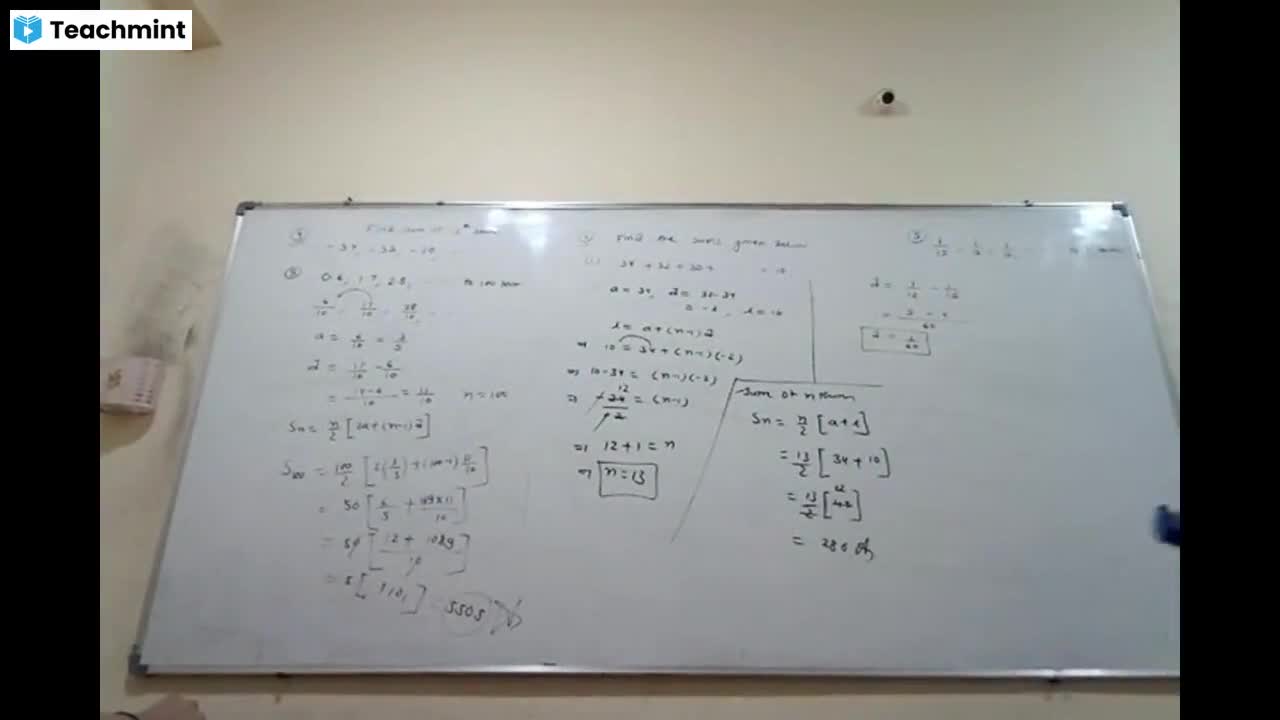 Teachmint
Find sum of
- 34, - 32, - 10
0.6, 1.7, 2.8, to 100 term
6/10, 17/10, 28/10,
a = 6/10 = 3/5
d = 17/10 - 6/10
= 17-6/10 = 11/10 n = 100
Sn = n/2 [2a+(n-1)d]
S100 = 100/2 [2(3/5)+(100-1)11/10]
= 50 [6/5 + 99×11/10]
= 50 [12 + 1089/10]
= 5 [1101] 5505
Find the sums given below
34 + 32 + 30 + = 10
a = 34, d = 32-34
= -2, l = 10
l = a+(n-1)d
⇒ 10 = 34+(n-1)(-2)
⇒ 10-34 = (n-1)(-2)
⇒ -24/2 = (n-1)
12
⇒ 12+1 = n
⇒ n=13
Sum of n term
Sn = n/2 [a+l]
= 13/2 [34+10]
= 13/2 [44]
= 286
5
1/15, 1/12, 1/10,
d = 1/12 - 1/15
= 5 - 4/60
d = 1/60